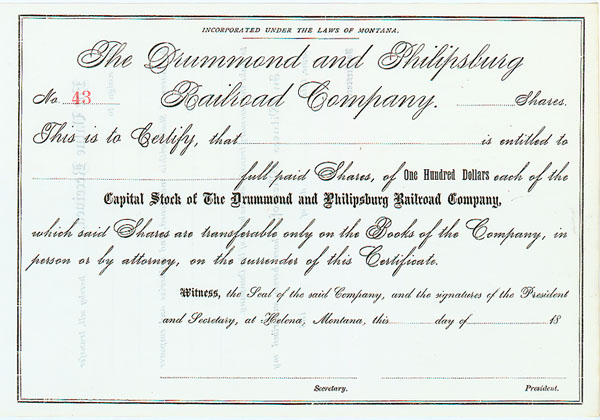 INCORPORATED UNDER THE LAWS OF MONTANA.
The Drummond and Philipsburg
No. 43 Railroad Company. Shares.
This is to Certify, that is entitled to
full paid Shares, of One Hundred Dollars each of the
Capital Stock of The Drummond and Philipsburg Railroad Company,
which said Shares are transferable only on the Books of the Company, in
person or by attorney, on the surrender of this Certificate.
Witness, the Seal of the said Company, and the signatures of the President
and Secretary, at Helena, Montana, this day of 18
Secretary. President.